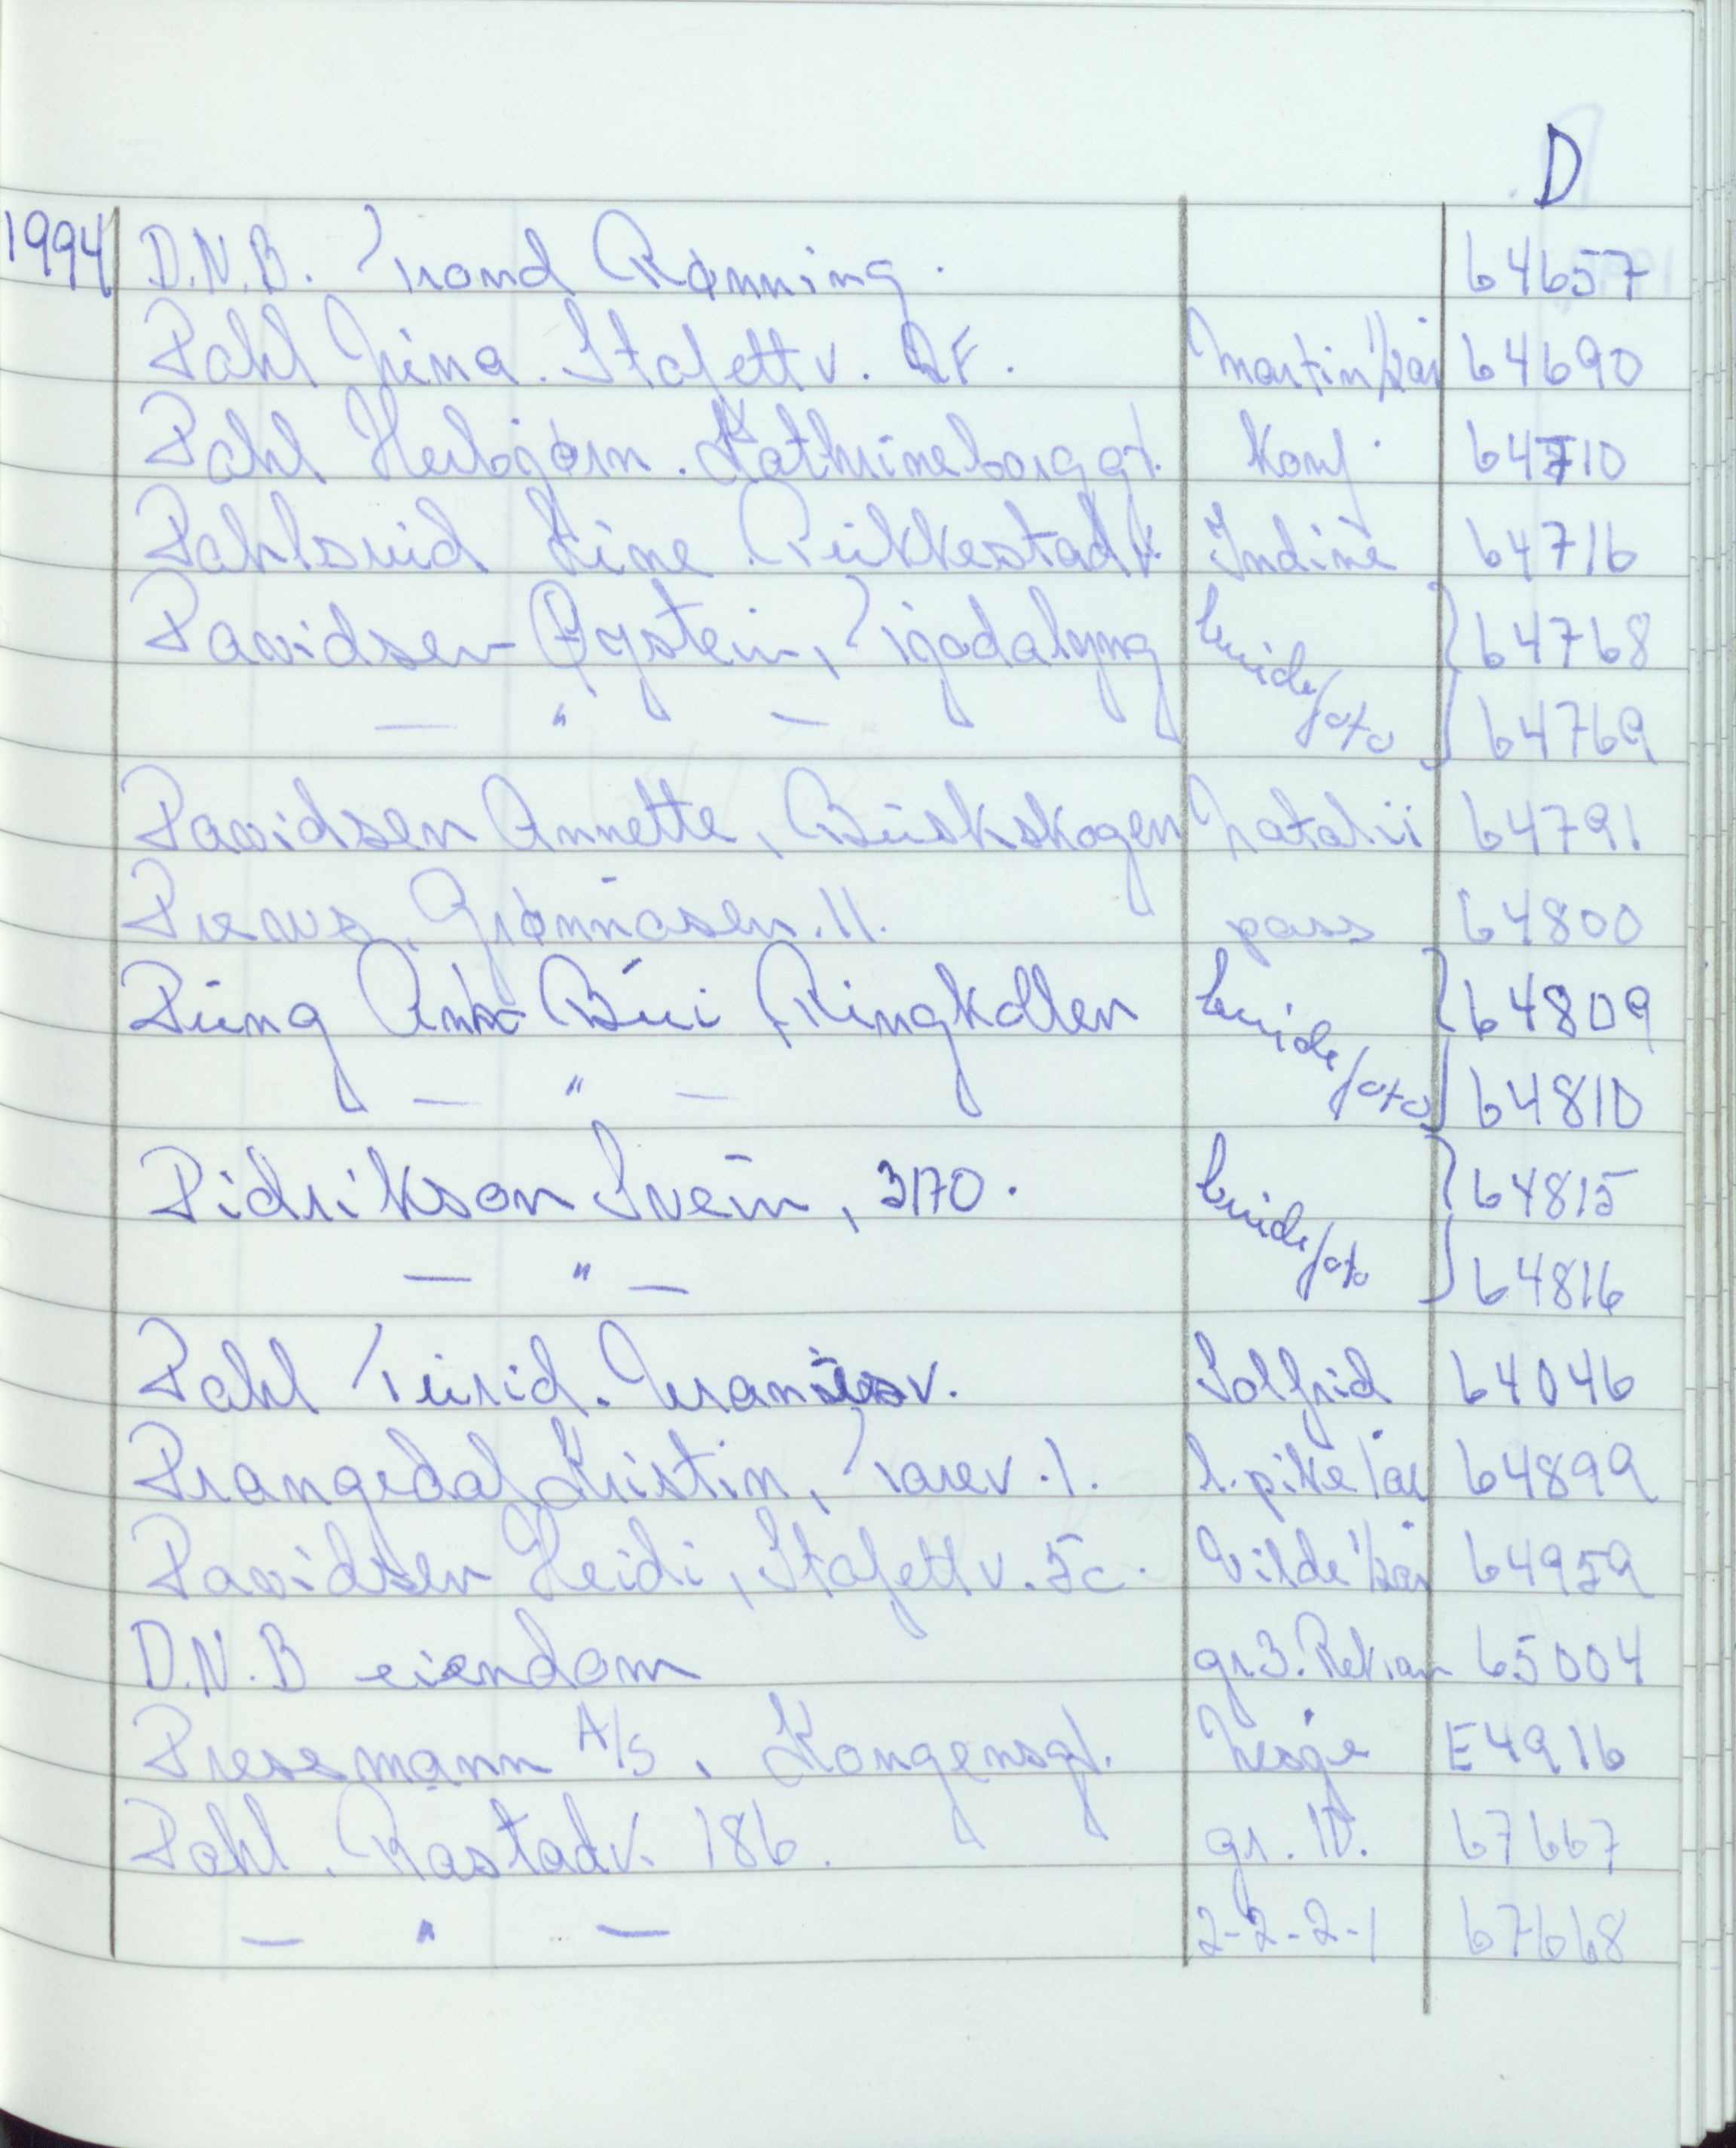 D
1994 D.N.B. Trond Rønning. 64657
Dahl Nina. Stafettv. 2F. Martin 1/2 år 64690
Dahl Herbjørn. Kathrineborggt. Konf. 64710
Dahlsrud Line. Rukkestadv. Undine 64716
Davidsen Øystein, Sigdalsving brude/foto } 64768
— " — } 64769
Davidsen Annette, Buskskogen Natalii 64791
Drews. Grønnåsen. 11. pass 64800
Dung Anh Bui Ringkollen brude/foto } 64809
— " — } 64810
Didrikson Svein, 3170. brude/foto } 64815
— " — } 64816
Dahl Turid. Solfrid 64046
Drangedal Kristin, Tarev. 1. l. pike 1 år 64899
Davidsen Heidi, Stafettv. 5c. Vilde 1/2 år 64959
D.N.B eiendom gr 3. Reklam 65004
Dressmann A/S. Kongensgt. E4916
Dahl. Råstadv. 186. gr. 10. 67667
— " — 2-2-2-1 67668